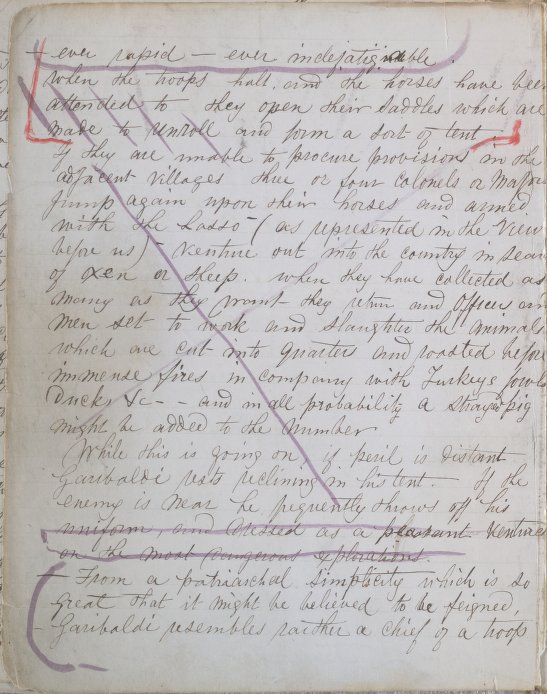 ever rapid — ever indefatigable.
when the troops halt, and the horses have been
attended to they open their saddles which are
made to unroll and form a sort of tent
If they are unable to procure provisions in the
adjacent villages three or four colonels or Majors
Jump again upon their horses and armed
with the Lasso — (as represented in the View
before us) — venture out into the country in sear
of oxen or sheep. when they have collected as
many as they want — they return and Officers an
Men set to work and slaughter the animals
which are cut into quarters and roasted before
immense fires in company with Turkeys fowls
Ducks &c - - and in all probability a strayed pig
might be added to the number
While this is going on, if peril is distant
Garibaldi rests reclining in his tent. — If the
enemy is near he frequently throws off his
uniform, and dressed as a peasant ventures
on the most dangerous explorations.
From a patriarchal simplicity which is so
great that it might be believed to be feigned,
Garibaldi resembles rather a chief of a troop